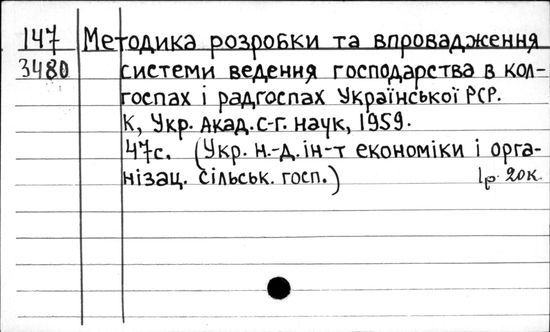 147 Методика розробки та впровадження
3480 системи ведення господарства в кол-
госпах і радгоспах Української РСР.
К, Укр. Акад. с-г. наук, 1959.
47с. (Укр. н.-д. ін-т економіки і орга-
нізац. сільськ. госп.) 1р. 20к.